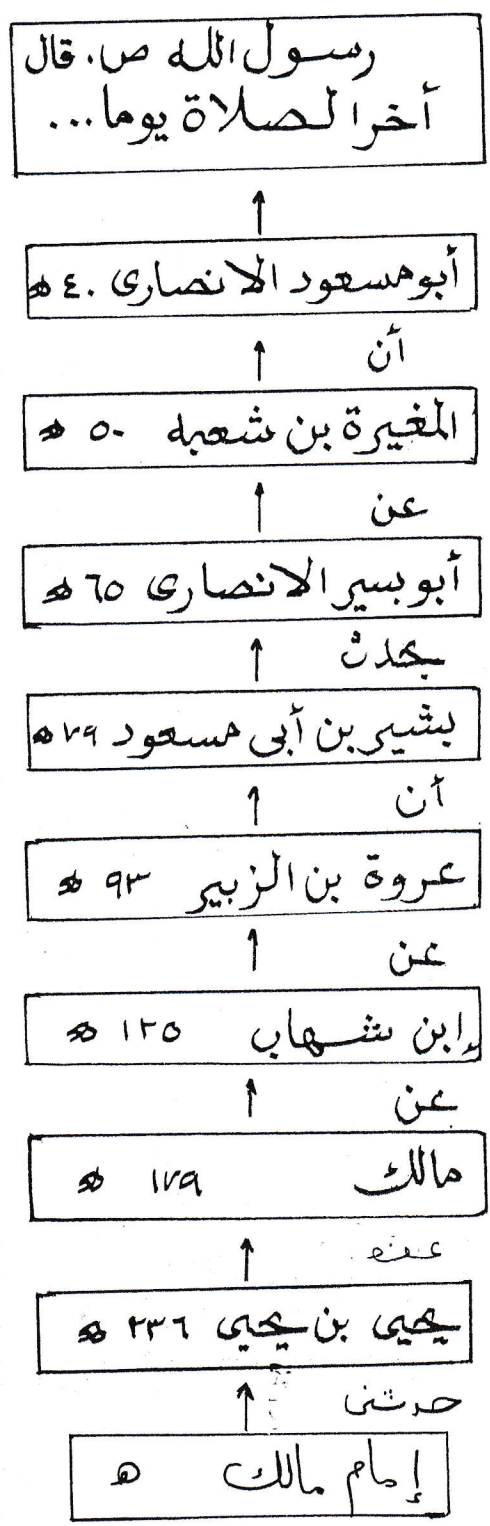 رسول الله ص. قال
أخر الصلاة يوما...
أبو مسعود الانصارى ٤٠ ھ
أن
المغيرة بن شعبه ٥٠ ھ
عن
أبو بسير الانصارى ٦٥ ھ
يحدث
بشير بن أبى مسعود ٧٩ ھ
أن
عروة بن الزبير ٩٣ ھ
عن
إبن شهاب ١٢٥ ھ
عن
مالك ١٧٩ ھ
عن
يحيى بن يحيى ٢٣٦ ھ
حدثنى
إمام مالك ھ